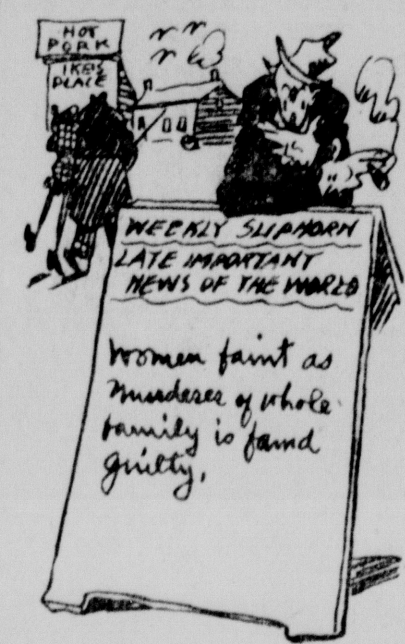 HOT
PORK
IKES
PLACE
WEEKLY SLIPHORN
LATE IMPORTANT
NEWS OF THE WORLD
Women faint as
murderer of whole
family is found
guilty.